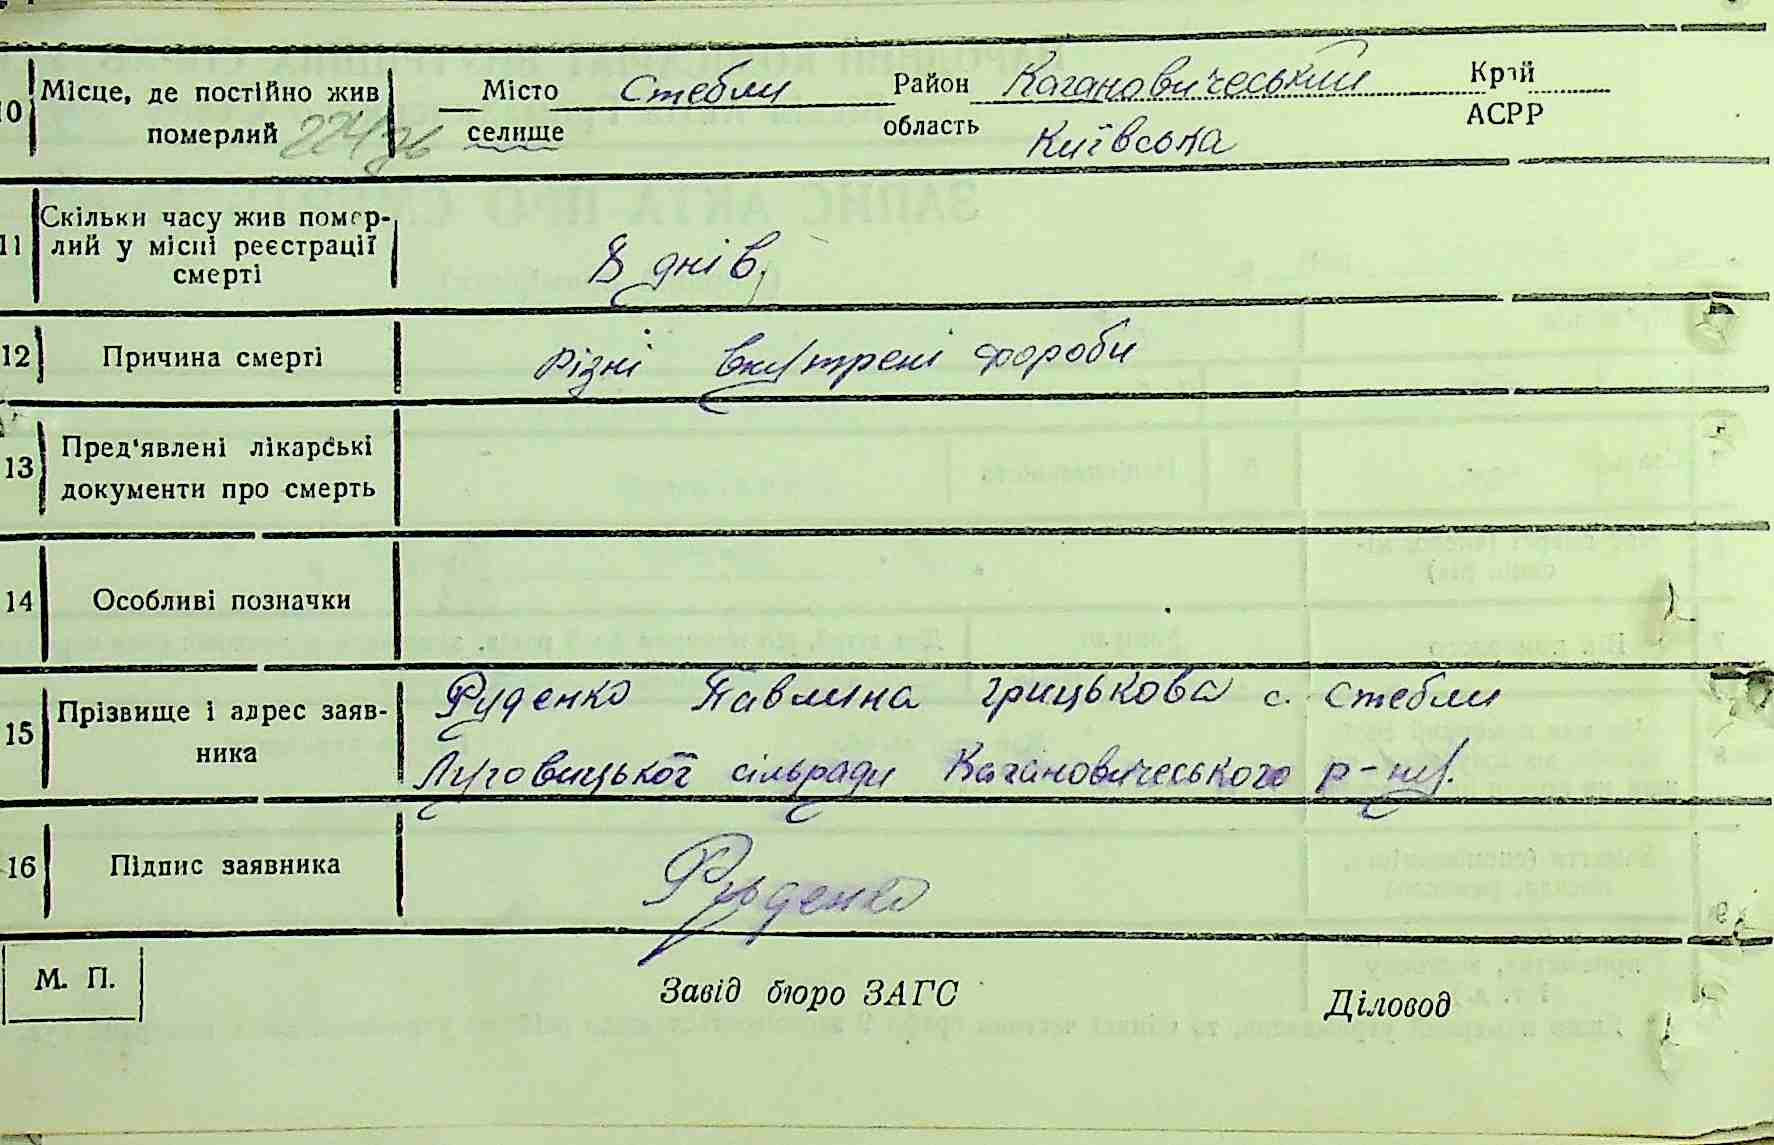 Місто Стебли Район Кагановичеський Край
10 Місце, де постійно жив
померлий
селище область Київська АСРР
11 Скільки часу жив помер-
лий у місці реєстрації
смерті
8 днів
12 Причина смерті різні внутрені хороби
13 Пред'явлені лікарські
документи про смерть
14 Особливі позначки
15 Прізвище і адрес заяв-
ника
Руденко Павлина Грицькова с. Стебли
Луговицької сільради Кагановичеського р-ну.
16 Підпис заявника Руденко
М. П.
Завід бюро ЗАГС Діловод